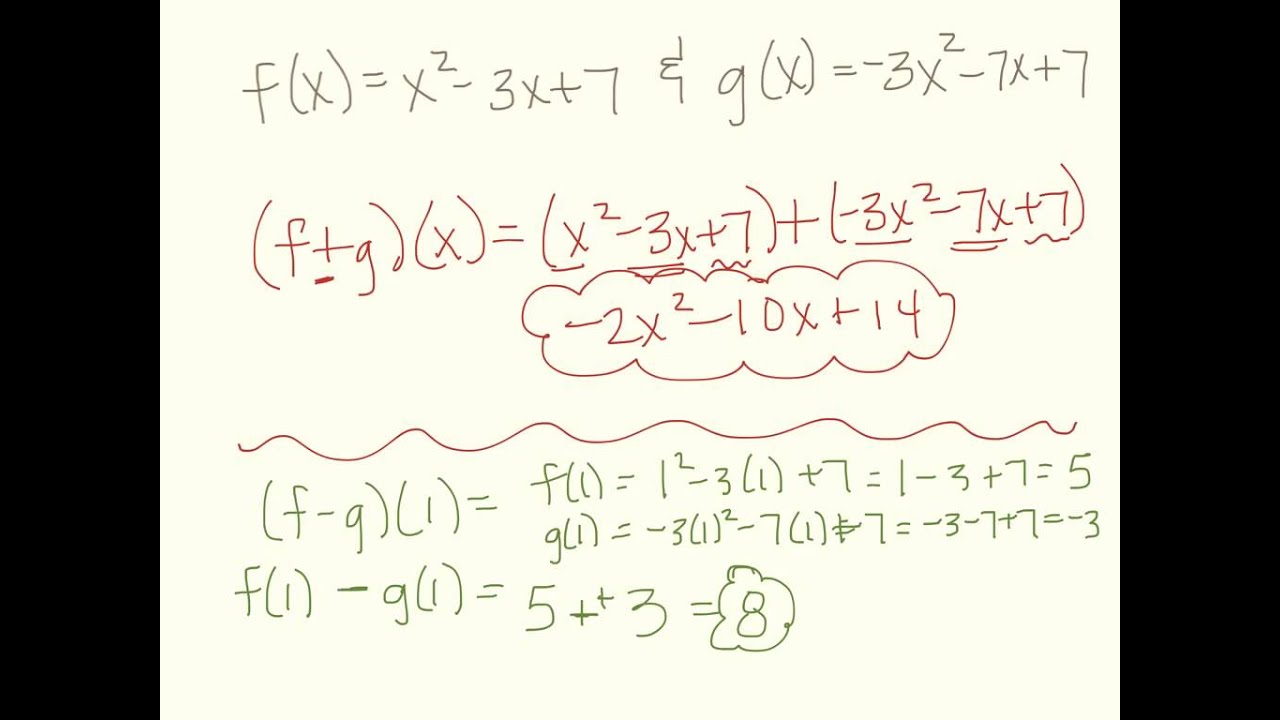 f(x) = x² - 3x + 7 & g(x) = -3x² - 7x + 7
(f+g)(x) = (x² - 3x + 7) + (-3x² - 7x + 7)
-2x² - 10x + 14
(f-g)(1) = f(1) = 1² - 3(1) + 7 = 1 - 3 + 7 = 5
g(1) = -3(1)² - 7(1) + 7 = -3 - 7 + 7 = -3
f(1) - g(1) = 5 + + 3 = 8